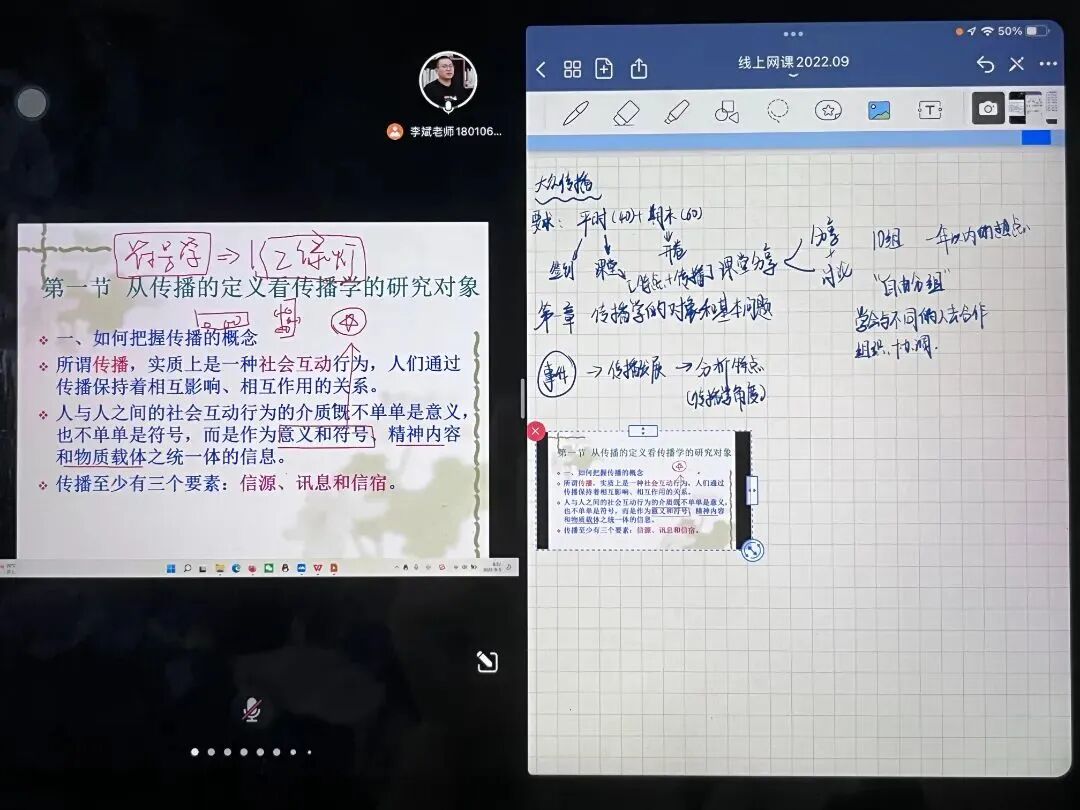 李斌老师180106...
符号学 ⇒ 红绿灯
第一节 从传播的定义看传播学的研究对象
一、如何把握传播的概念
所谓传播，实质上是一种社会互动行为，人们通过
传播保持着相互影响、相互作用的关系。
人与人之间的社会互动行为的介质既不单单是意义，
也不单单是符号，而是作为意义和符号、精神内容
和物质载体之统一体的信息。
传播至少有三个要素：信源、讯息和信宿。
50%
线上网课2022.09
T
大众传播
要求：平时(40)+期末(60)
签到 课堂 开卷
课堂分享
分享
+
讨论
10组 一年以内的热点
"自由分组"
学会与不同的人去合作
组织、协调.
第一章 传播学的对象和基本问题
事件 → 传播发展 → 分析特点
(传播学角度)
第一节 从传播的定义看传播学的研究对象
一、如何把握传播的概念
所谓传播，实质上是一种社会互动行为，人们通过
传播保持着相互影响、相互作用的关系。
人与人之间的社会互动行为的介质既不单单是意义，
也不单单是符号，而是作为意义和符号、精神内容
和物质载体之统一体的信息。
传播至少有三个要素：信源、讯息和信宿。